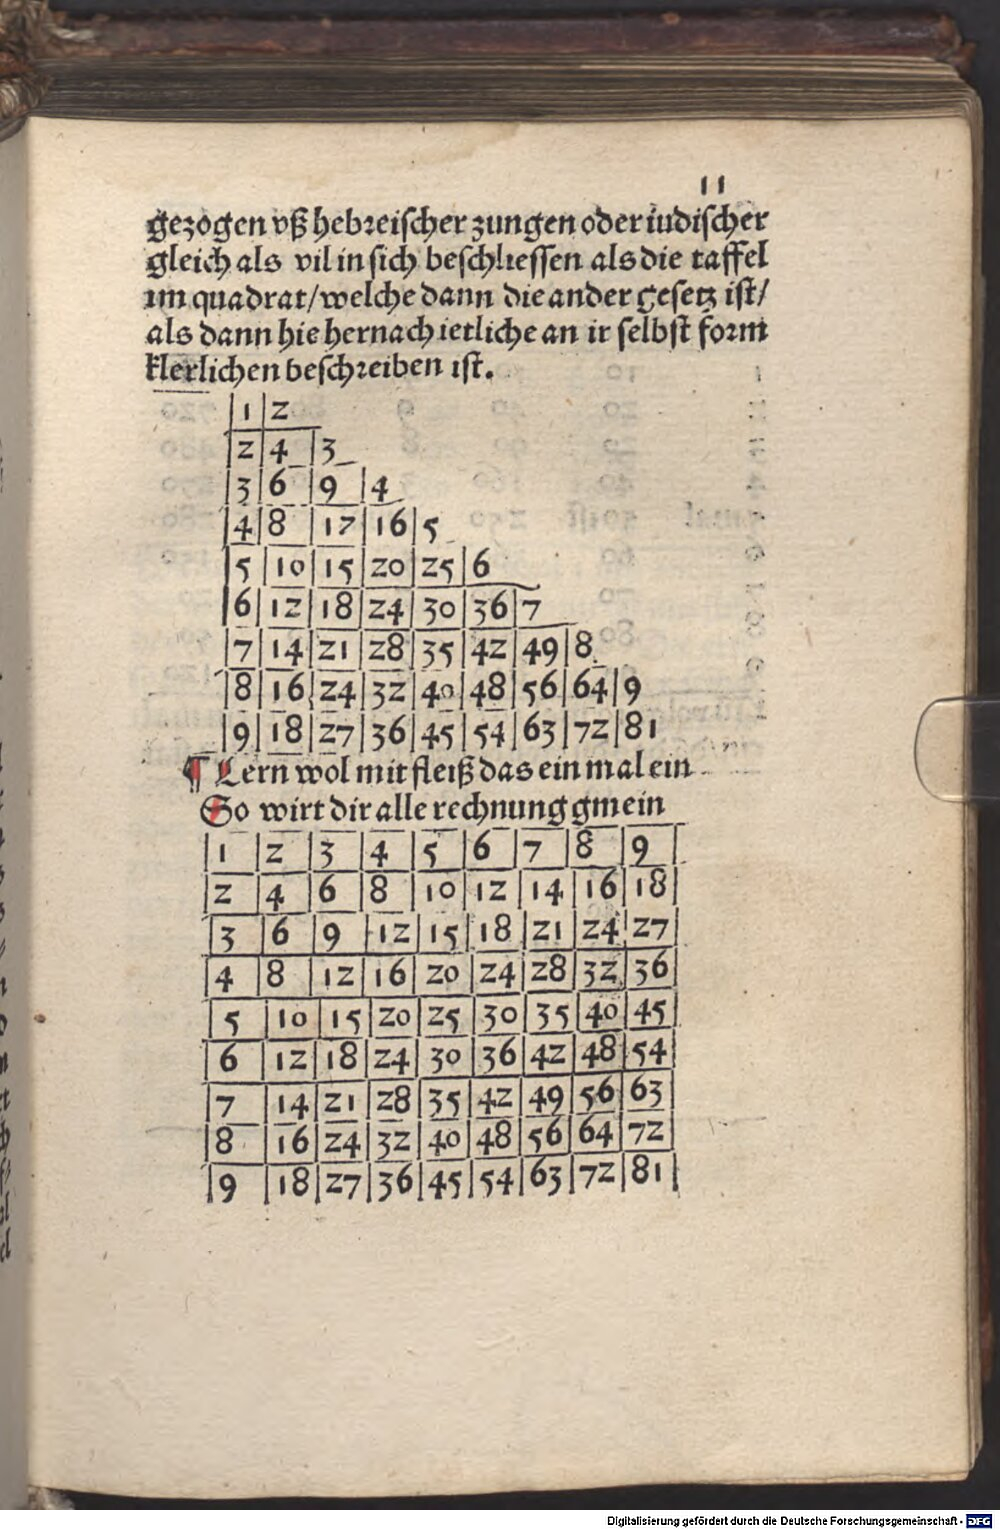 11
gezogen vß hebreischer zungen oder iudischer
gleich als vil in sich beschliessen als die taffel
im quadrat/welche dann die ander gesetz ist/
als dann hie hernach ietliche an ir selbst form
klerlichen beschreiben ist.
1 2
2 4 3
3 6 9 4
4 8 12 16 5
5 10 15 20 25 6
6 12 18 24 30 36 7
7 14 21 28 35 42 49 8
8 16 24 32 40 48 56 64 9
9 18 27 36 45 54 63 72 81
¶ Lern wol mit fleiß das ein mal ein
So wirt dir alle rechnung gmein
1 2 3 4 5 6 7 8 9
2 4 6 8 10 12 14 16 18
3 6 9 12 15 18 21 24 27
4 8 12 16 20 24 28 32 36
5 10 15 20 25 30 35 40 45
6 12 18 24 30 36 42 48 54
7 14 21 28 35 42 49 56 63
8 16 24 32 40 48 56 64 72
9 18 27 36 45 54 63 72 81
Digitalisierung gefördert durch die Deutsche Forschungsgemeinschaft - DFG